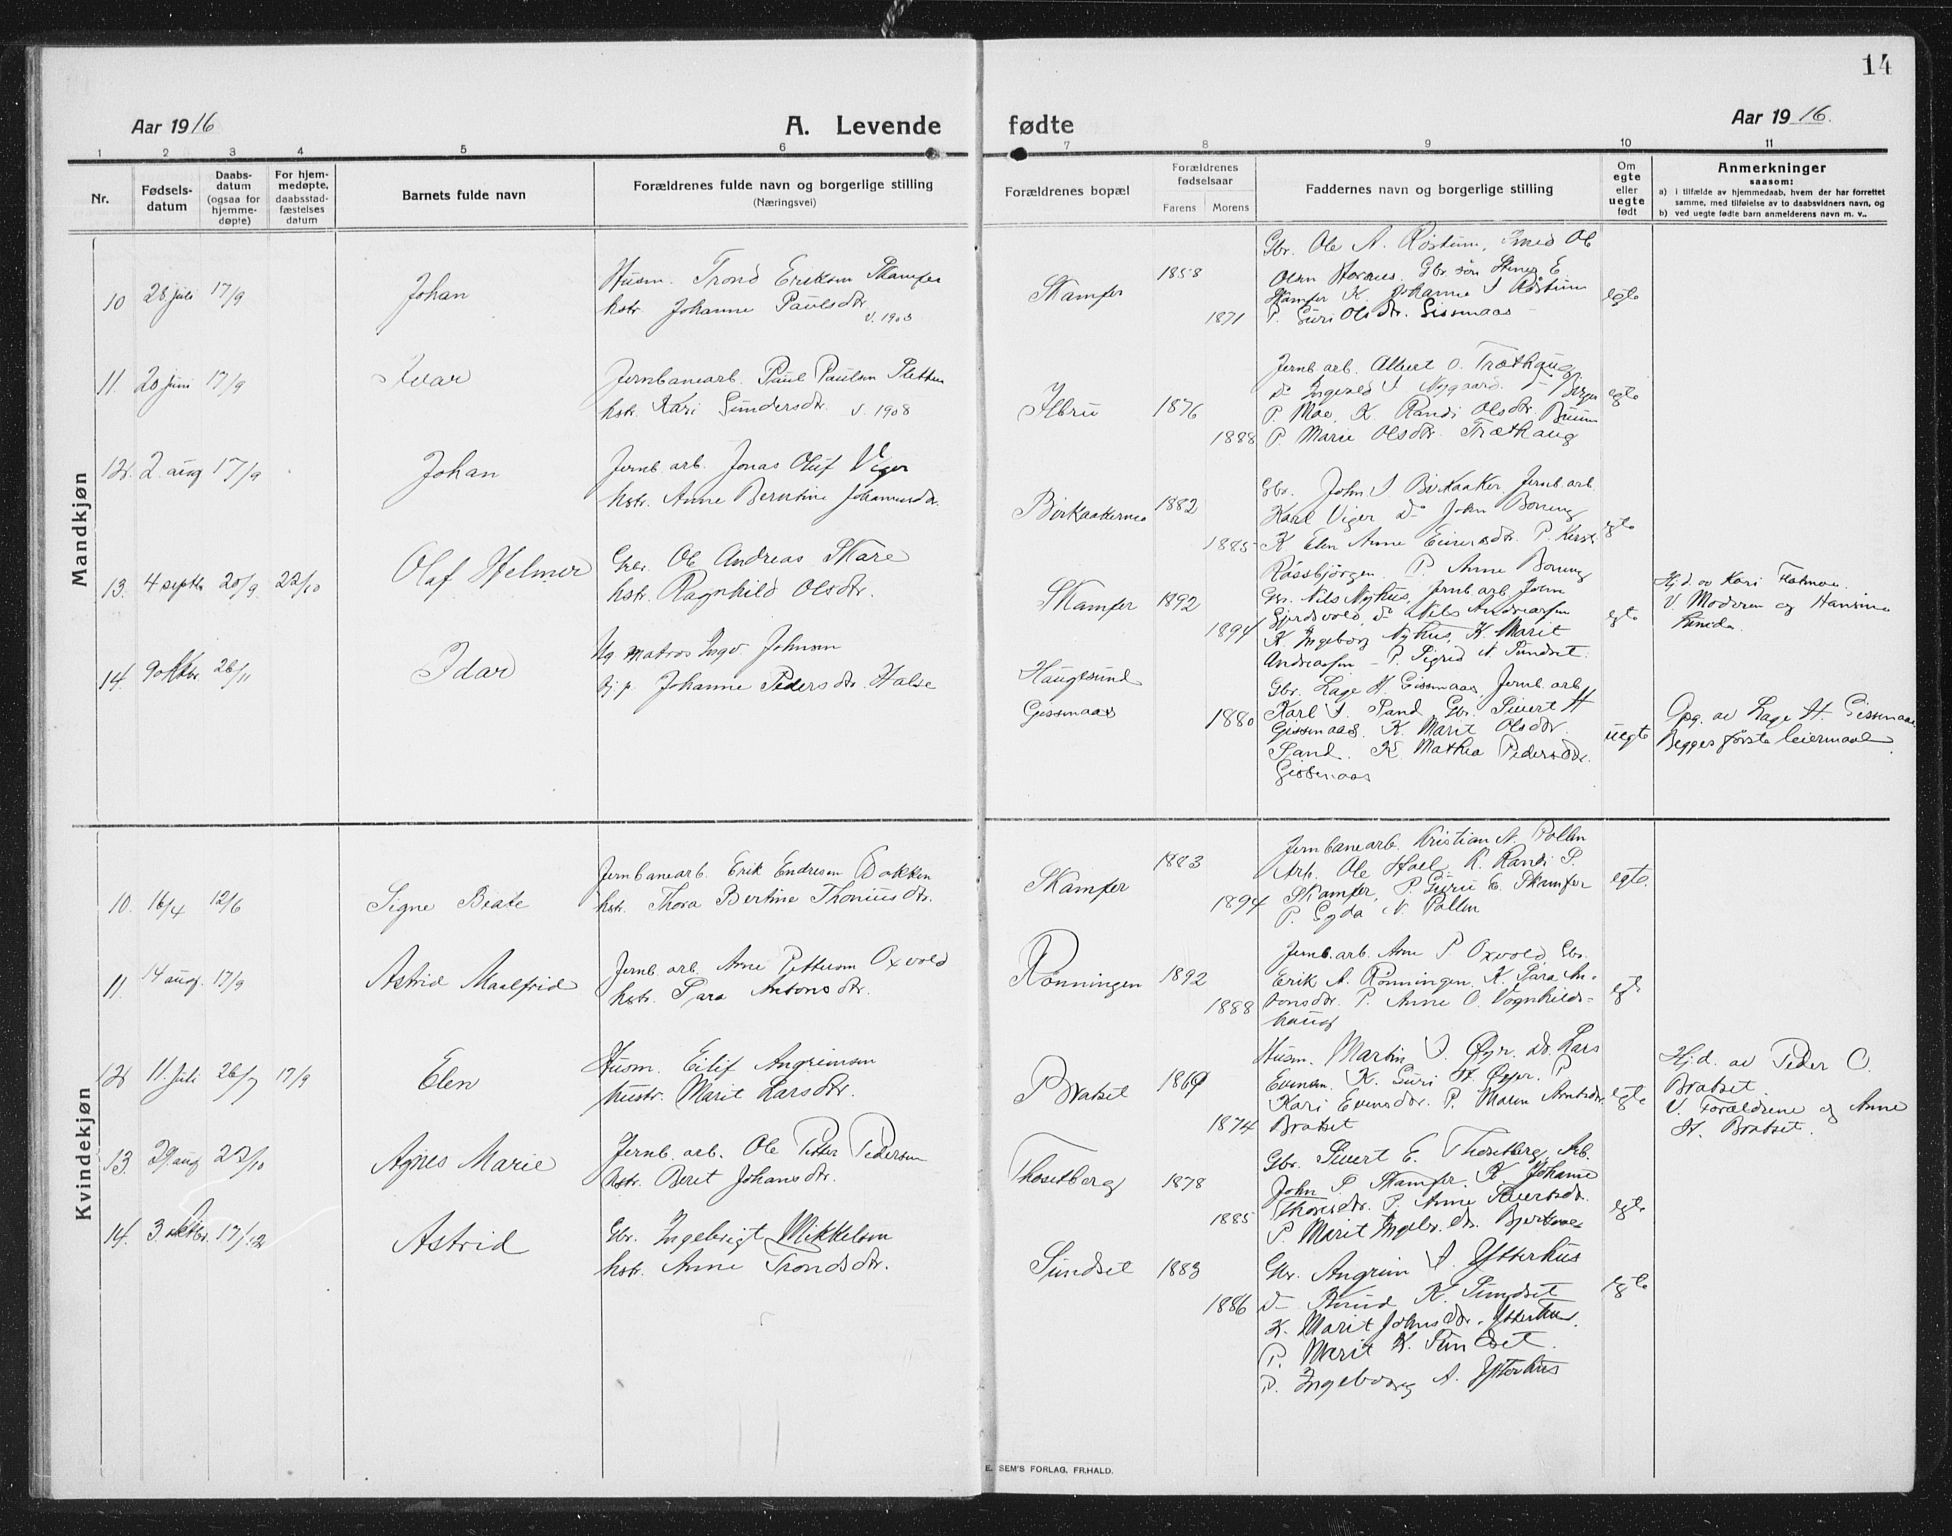 14
Aar 1916
A. Levende fødte
Aar 1916.
1 2 3 4 5 6 7 8 9 10 11
Nr.
Fødsels-
datum
Daabs-
datum
(ogsaa for
hjemme-
døpte)
For hjem-
medøpte,
daabsstad-
fæstelses
datum
Barnets fulde navn
Forældrenes fulde navn og borgerlige stilling
(Næringsvei)
Forældrenes bopæl
Forældrenes
fødselsaar
Farens Morens
Faddernes navn og borgerlige stilling
Om
egte
eller
uegte
født
Anmerkninger
saasom:
a) i tilfælde av hjemmedaab, hvem der har forrettet
samme, med tilføielse av to daabsvidners navn, og
b) ved uegte fødte barn anmelderens navn m. v..
Mandkjøn
10 28 juli 17/9
Johan
Husm. Trond Eriksen Skamfer
hstr. Johanne Paulsdtr.
v. 1903
Skamfer
1858
1871
Gbr. Ole A. Røstum, Smed Ole
Olsen Gbr søn E
Skamfer K. Johanne Røstum
P. Guri Olsdtr. Gissnaas
egte
11. 20 juni 17/9
Ivar
Jernbanearb. Paul Paulsen Sletten
hstr. Kari Sundersdtr. v. 1908
Ilbru
1876
1888
Jernb arb. Albert O. Træthaug
do Ingvald Nygaard
P. Moe, K. Randi Olsdtr. Bruun
P. Marie Olsdtr. Træthaug
egte
12. 2. aug 17/9
Johan
Jernb. arb. Jonas Oluf Viger
hstr. Anne Berntine
Birkaakernes
1882
1885
Gbr. John J. Birkaaker Jernb. arb.
Karl Viger do John Boneng
K. Elen Anne P. Kirsti
Rossbjørgen P. Anne Boneng
egte
13. 4 septbr 20/9 22/10
Olaf Helmer
Gbr. Ole Andreas Skare
hstr. Ragnhild Olsdtr.
Skamfer
1892
1894
Gbr. Nils Nyhus, Jernb arb John
Gjerdsvold, do Nils Andreassen
K. Ingeborg Nyhus, K. Marit
Andreassen – P. Sigrid N. Sundset.
egte
Hj.d. av Kari
V. Moderen og Hansine
14. 9 oktbr. 26/11
Idar
Ug matros Ingv. Johnsen
Johanne Pedersdtr. Halse
Haugesund
Gissnaas
1880
Gbr. Lage H. Gissnaas, Jernb. arb
Karl J. Sand, Gbr. Sivert H
Gissnaas, K. Marit Olsdtr.
Sand. K. Mathea Pedersdtr.
Gissnaas
uegte
Opg. av Lage H. Gissnaas
Begges første leiermaal
Kvindekjøn
10. 16/4 12/6
Signe Beate
Jernbanearb. Erik Endresen Bakken
hstr. Thora Bertine Thoniusdtr.
Skamfer
1883
1894
Jernbanearb. Kristian N. Pollen
Arb. Ole Hoel K. Randi S.
Skamfer, P. Guru E. Skamfer
P. Gyda N. Pollen
egte.
11. 14 aug. 17/9
Astrid Maalfrid
Jernb. arb. Arne Pettersen Oxvold
hstr. Sara Antonsdtr.
Rønningen
1892
1888
Jernb. arb. Arne P Oxvold, Gbr.
Erik A. Rønningen, K. Sara An-
tonsdtr. P. Anne O. Vognhilds-
haug
egte
12 11. juli 26/7 17/9
Elen
Husm. Eilif Angrimsen
hustr. Marit Larsdtr.
Bratset
1869
1874
Husm. Martin J. Øyr. do. Lars
Evensen. K. Guri H. Øyer. P
Kari Evensdtr. P. Maren Arntsdtr.
Bratset
egte
Hj.d. av Peder O.
Bratset
V. Forældrene og Anne
H. Bratset.
13 29 aug 22/10
Agnes Marie
Jernb. arb. Ole Petter Pedersen
hstr. Beret Johansdtr.
Thosetberg
1878
1885
Gbr. Sivert E. Thosetberg, Arb.
John S. Skamfer. K. Johanne
Thoresdtr. P. Anne Sivertsdtr.
P. Marit Ingebr.dtr.
egte
14. 3 oktbr. 17/12
Astrid
Gbr. Ingebrigt Mikkelsen
hstr. Anne Trondsdtr.
Sundset
1883
1886
Gbr. Angrim J. Ytterhus
do K. Sundset
K. Marit Johnsdtr. Ytterhus.
P. Marit K. Sundset.
P. Ingeborg A. Ytterhus
egte
E. SEM'S FORLAG, FR.HALD.